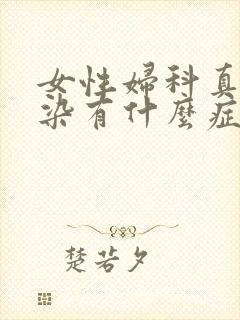 女性婦科真
染有什麼症
楚若夕